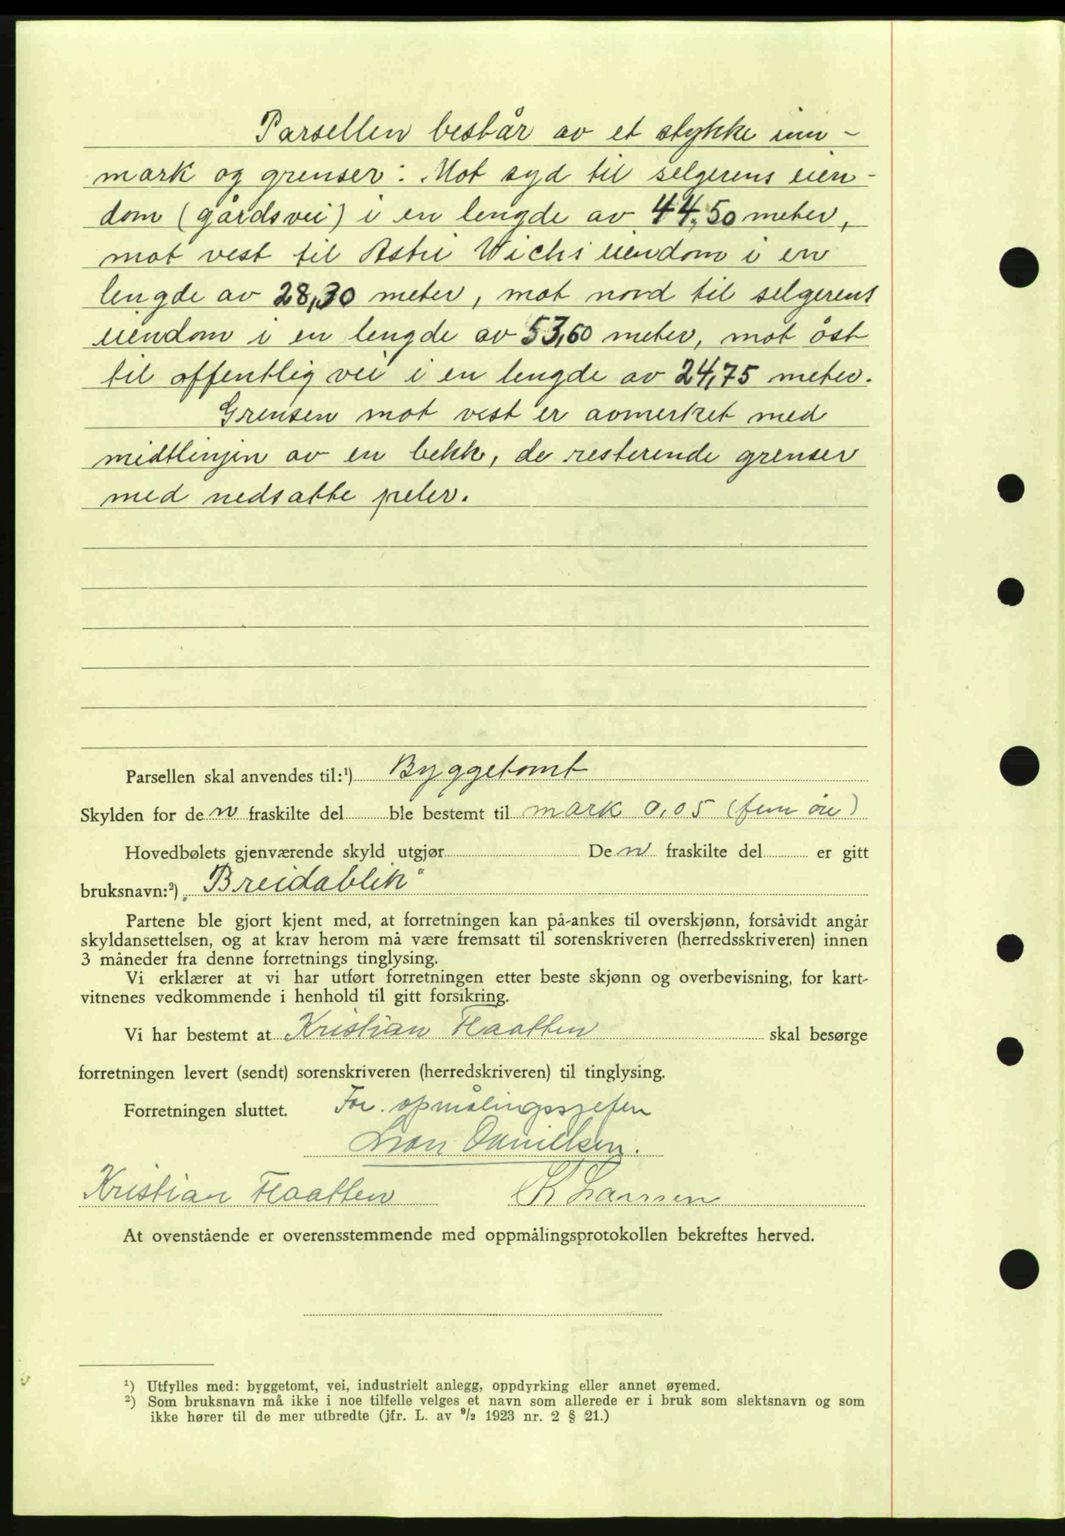 Parsellen består av et stykke inn-
mark og grenser: Mot syd til selgerens eien-
dom (gårdsvei) i en lengde av 44,50 meter,
mot vest til Astri Wichs eiendom i en
lengde av 28,30 meter, mot nord til selgerens
eiendom i en lengde av 53,60 meter, mot öst
til offentlig vei i en lengde av 24,75 meter.
Grensen mot vest er avmerket med
midtlinjen av en bekk, de resterende grenser
med nedsatte peler.
Parsellen skal anvendes til:¹) Byggetomt
Skylden for den fraskilte del ble bestemt til mark 0,05 (fem öre)
Hovedbølets gjenværende skyld utgjør Den fraskilte del er gitt
bruksnavn:²) „Breidablik"
Partene ble gjort kjent med, at forretningen kan på-ankes til overskjønn, forsåvidt angår
skyldansettelsen, og at krav herom må være fremsatt til sorenskriveren (herredsskriveren) innen
3 måneder fra denne forretnings tinglysing.
Vi erklærer at vi har utført forretningen etter beste skjønn og overbevisning, for kart-
vitnenes vedkommende i henhold til gitt forsikring.
Vi har bestemt at Kristian Flaatten skal besørge
forretningen levert (sendt) sorenskriveren (herredskriveren) til tinglysing.
Forretningen sluttet. For opmålingssjefen
Danielsen.
Kristian Flaatten K Larssen
At ovenstående er overensstemmende med oppmålingsprotokollen bekreftes herved.
¹) Utfylles med: byggetomt, vei, industrielt anlegg, oppdyrking eller annet øyemed.
²) Som bruksnavn må ikke i noe tilfelle velges et navn som allerede er i bruk som slektsnavn og som
ikke hører til de mer utbredte (jfr. L. av ⁹/₂ 1923 nr. 2 § 21.)